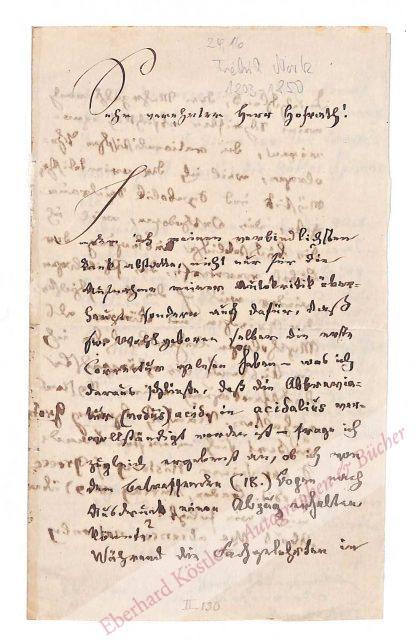 24/10
1803-1850
Sehr verehrter Herr Hofrath!
Indem ich meinen verbindlichsten
Dank abstatte, nicht nur für die
Aufnahme meiner Autokritik über-
haupt, sondern auch dafür, daß
Euer Wohlgeboren selber die erste
Correctur gelesen haben – was ich
daraus schließe, daß die Abbrevia-
tur (modus) acid. in acidalius ver-
vollständigt worden ist – frage ich
zugleich ergebenst an, ob ich von
dem betreffenden (18.) Bogen nach
Ausdruck einen Abzug erhalten
könnte?
Während die Fachgelehrten in
II-130
Eberhard Köstler Autographen & Bücher